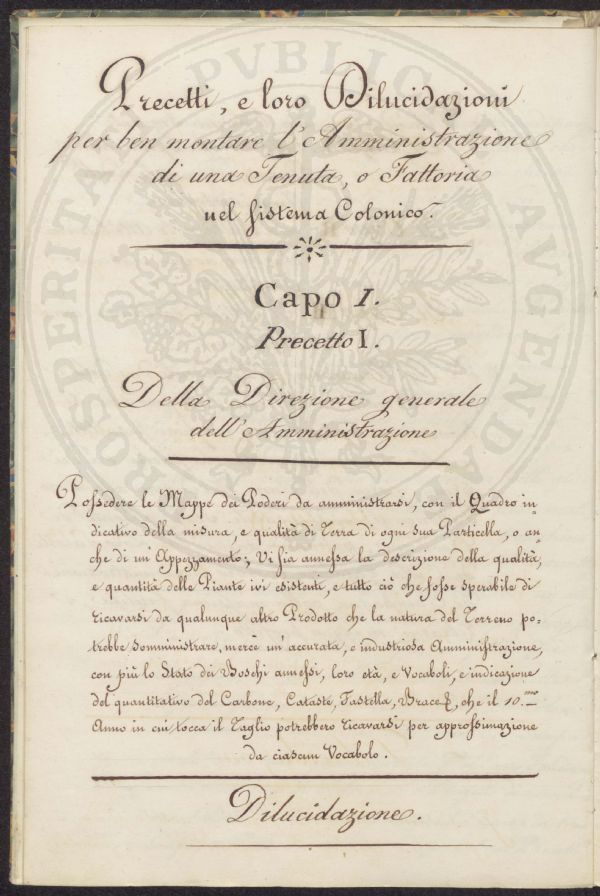 Precetti, e loro Dilucidazioni
per ben montare l'Amministrazione
di una Tenuta, o Fattoria
nel sistema Colonico.
Capo I.
Precetto I.
Della Direzione generale
dell'Amministrazione
Possedere le Mappe dei Poderi da amministrarsi, con il Quadro in=
dicativo della misura, e qualità di Terra di ogni sua Particella, o an=
che di un'Appezzamento; Vi sia annessa la descrizione della qualità,
e quantità delle Piante ivi esistenti, e tutto ciò che fosse sperabile di
ricavarsi da qualunque altro Prodotto che la natura del Terreno po=
trebbe somministrare, mercè un'accurata, e industriosa Amministrazione,
con più lo Stato dei Boschi annessi, loro età, e Vocaboli, e indicazione
del quantitativo del Carbone, Cataste, Fastella, Brace &, che il 10.mo
Anno in cui tocca il Taglio potrebbero ricavarsi per approssimazione
da ciascun Vocabolo.
Dilucidazione.
PROSPERITATI PVBLICAE AVGENDAE